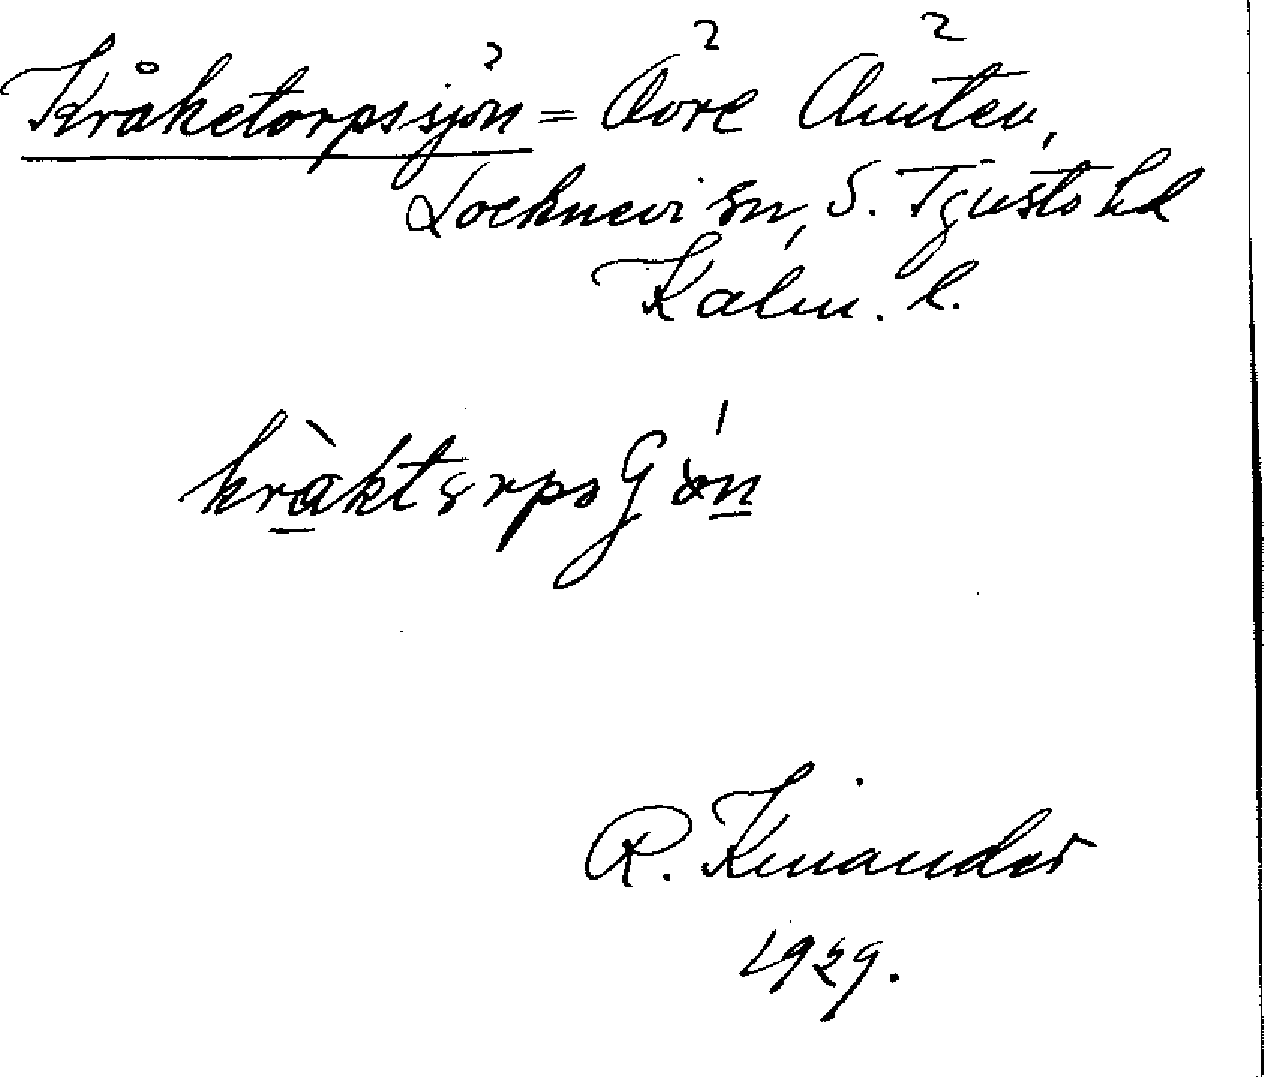 Kråketorpssjön² = Övre² Emten²,
Locknevi sn, S. Tjusts hd
Kalm. l.
kràktɛrpsGón
R. Kinander
1929.